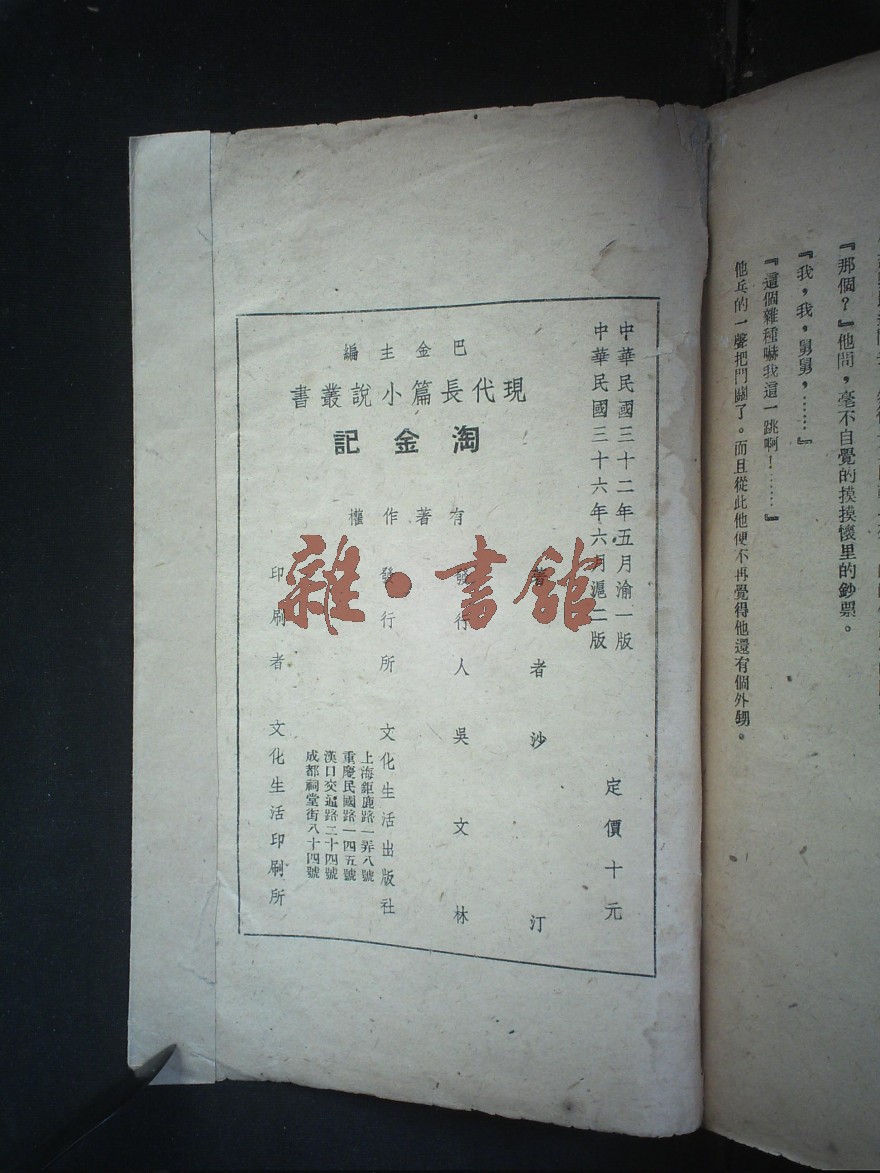 『那個？』他問，毫不自覺的摸摸懷里的鈔票。
『我，我，舅舅，……』
『這個雜種嚇我這一跳啊！……』
他乓的一聲把門關了。而且從此他便不再覺得他還有個外甥。
中華民國三十二年五月渝一版
中華民國三十六年六月滬二版
定價十元
巴金主編
現代長篇小說叢書
淘金記
有著作權
著者 沙汀
發行人 吳文林
發行所 文化生活出版社
上海鉅鹿路一弄八號
重慶民國路一四五號
漢口交通路二十四號
成都祠堂街八十四號
印刷者 文化生活印刷所
雜·書館